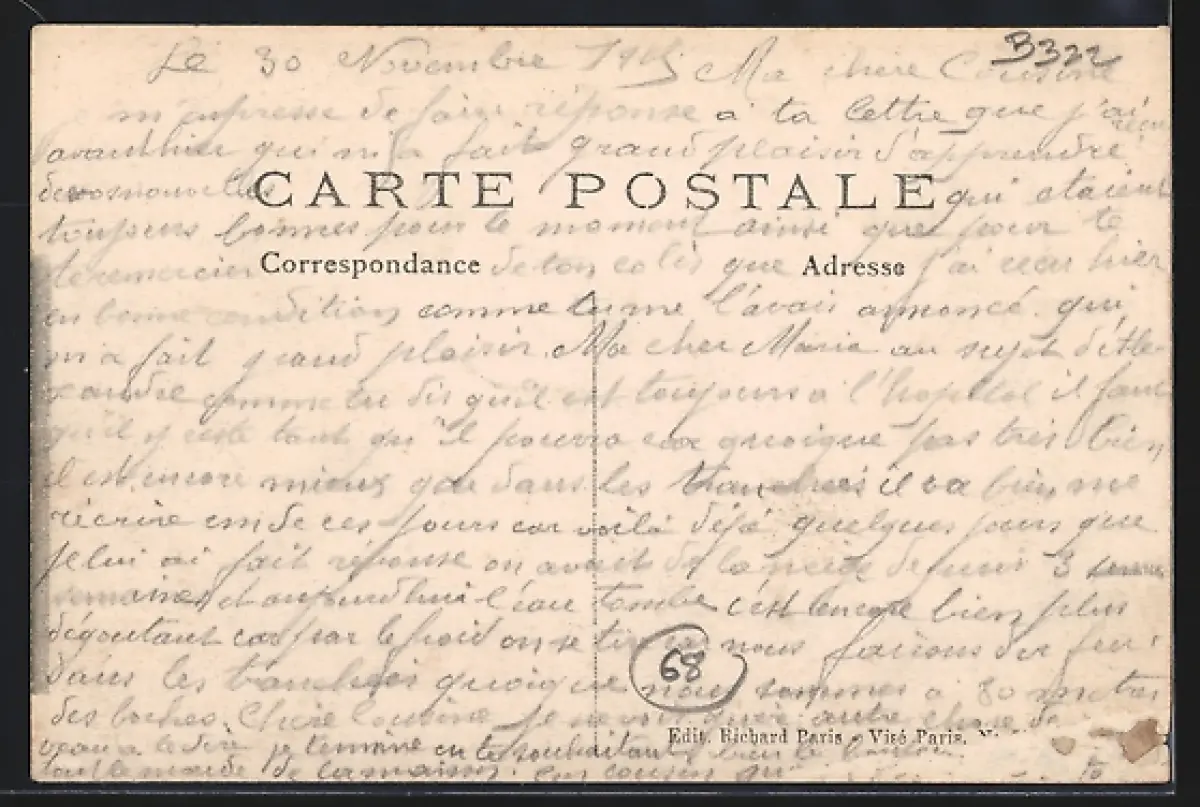 B322
Le 30 Novembre 1915 Ma chère Cousine
m'empresse de faire réponse a ta lettre que j'ai reçu
avant hier qui m'a fait grand plaisir d'apprendre
de vos nouvelles
CARTE POSTALE
qui etaient
toujours bonnes pour le moment ainsi que pour te
remercier
Correspondance
de ton colis que
Adresse
j'ai recu hier
en bonne condition comme tu me l'avais annoncé. qui
m'a fait grand plaisir. Ma cher Marie au sujet d'Ale
xandre comme tu dis qu'il est toujours a l'hopital il faut
qu'il y reste tant qu'il pourra car quoique pas tres bien
il est encore mieux que dans les tranchées il va bien me
récrire un de ces jours car voilà déjà quelques jours que
je lui ai fait réponse on avait de la neige depuis 3
semaines et aujourd'hui l'eau tombe c'est encore bien plus
dégoutant car par le froid on se tire nous faisons du feu
dans les tranchées quoique nous sommes a 80 metres
68
des boches. Chère Cousine je ne voit autre chose de
Edit. Richard Paris - Visé Paris. N°
veau a te dire je termine en te souhaitant bien le
tout le monde de la maison. ton cousin qui